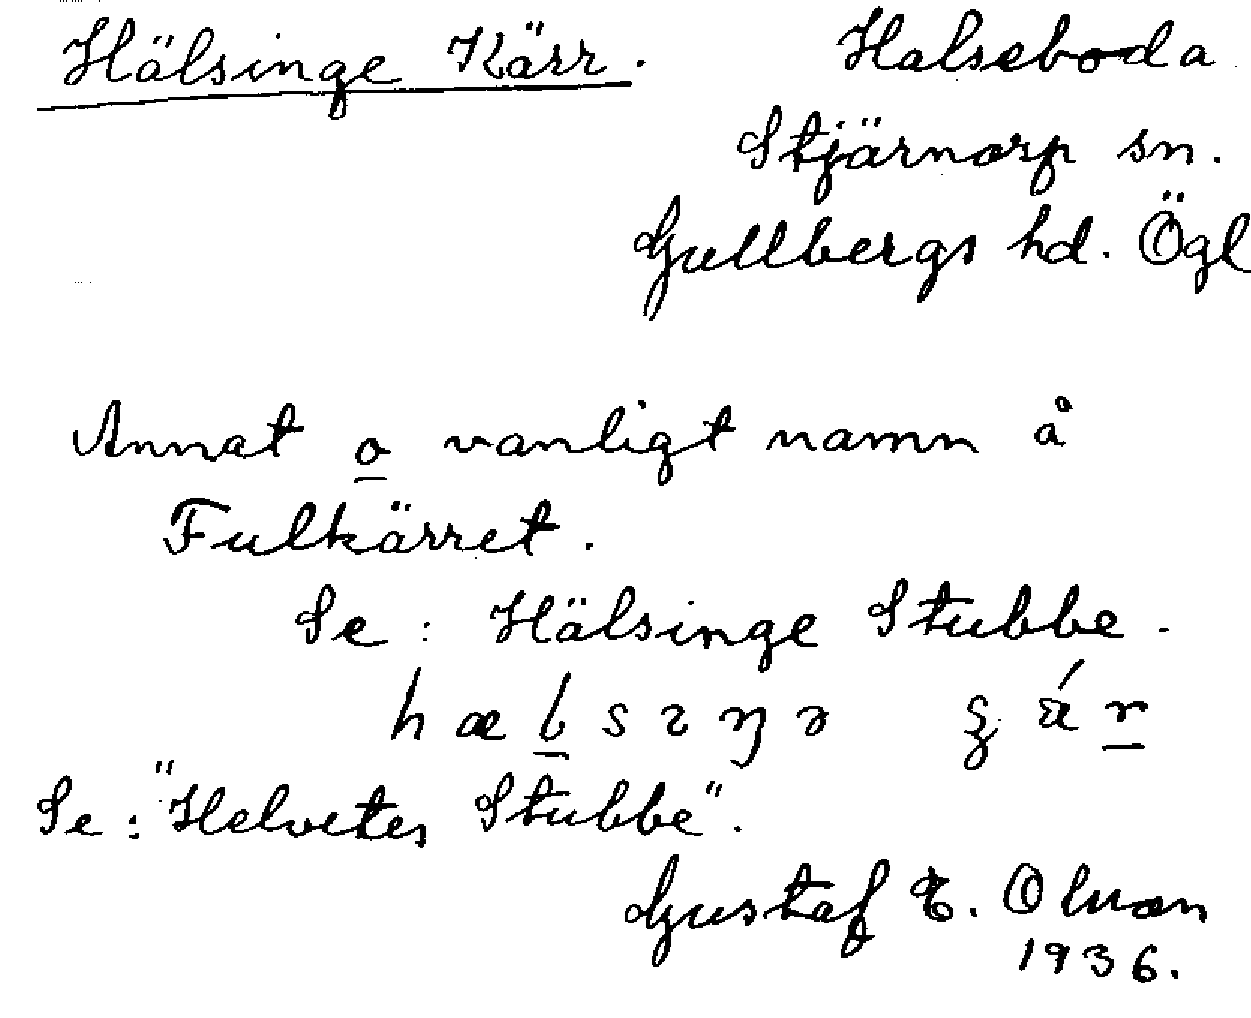 Hälsinge Kärr. Halseboda
Stjärnorp sn.
Gullbergs hd. Ögl
Annat o vanligt namn å
Fulkärret.
Se: Hälsinge Stubbe.
Se: "Helvetes Stubbe".
Gustaf E. Olsson
1936.